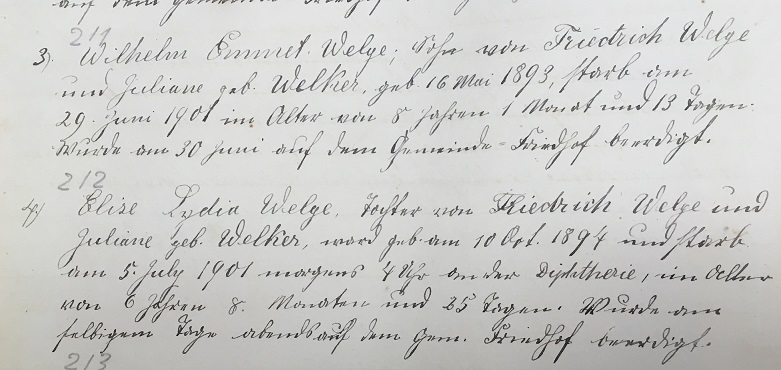 auf dem Gemeinde Friedhof beerdigt.
211
3) Wilhelm Emmet Welge, Sohn von Friedrich Welge
und Juliane geb. Welker, geb. 16 Mai 1893, starb am
29. Juni 1901 im Alter von 8 Jahren 1 Monat und 13 Tagen.
Wurde am 30 Juni auf dem Gemeinde-Friedhof beerdigt.
212
4) Elise Lydia Welge, Tochter von Friedrich Welge und
Juliane geb. Welker, ward geb. am 10 Oct. 1894 und starb
am 5. July 1901 morgens 4 Uhr an der Diphtherie, im Alter
von 6 Jahren 8. Monaten und 25 Tagen. Wurde am
selbigem Tage abends auf dem Gem. Friedhof beerdigt.
213